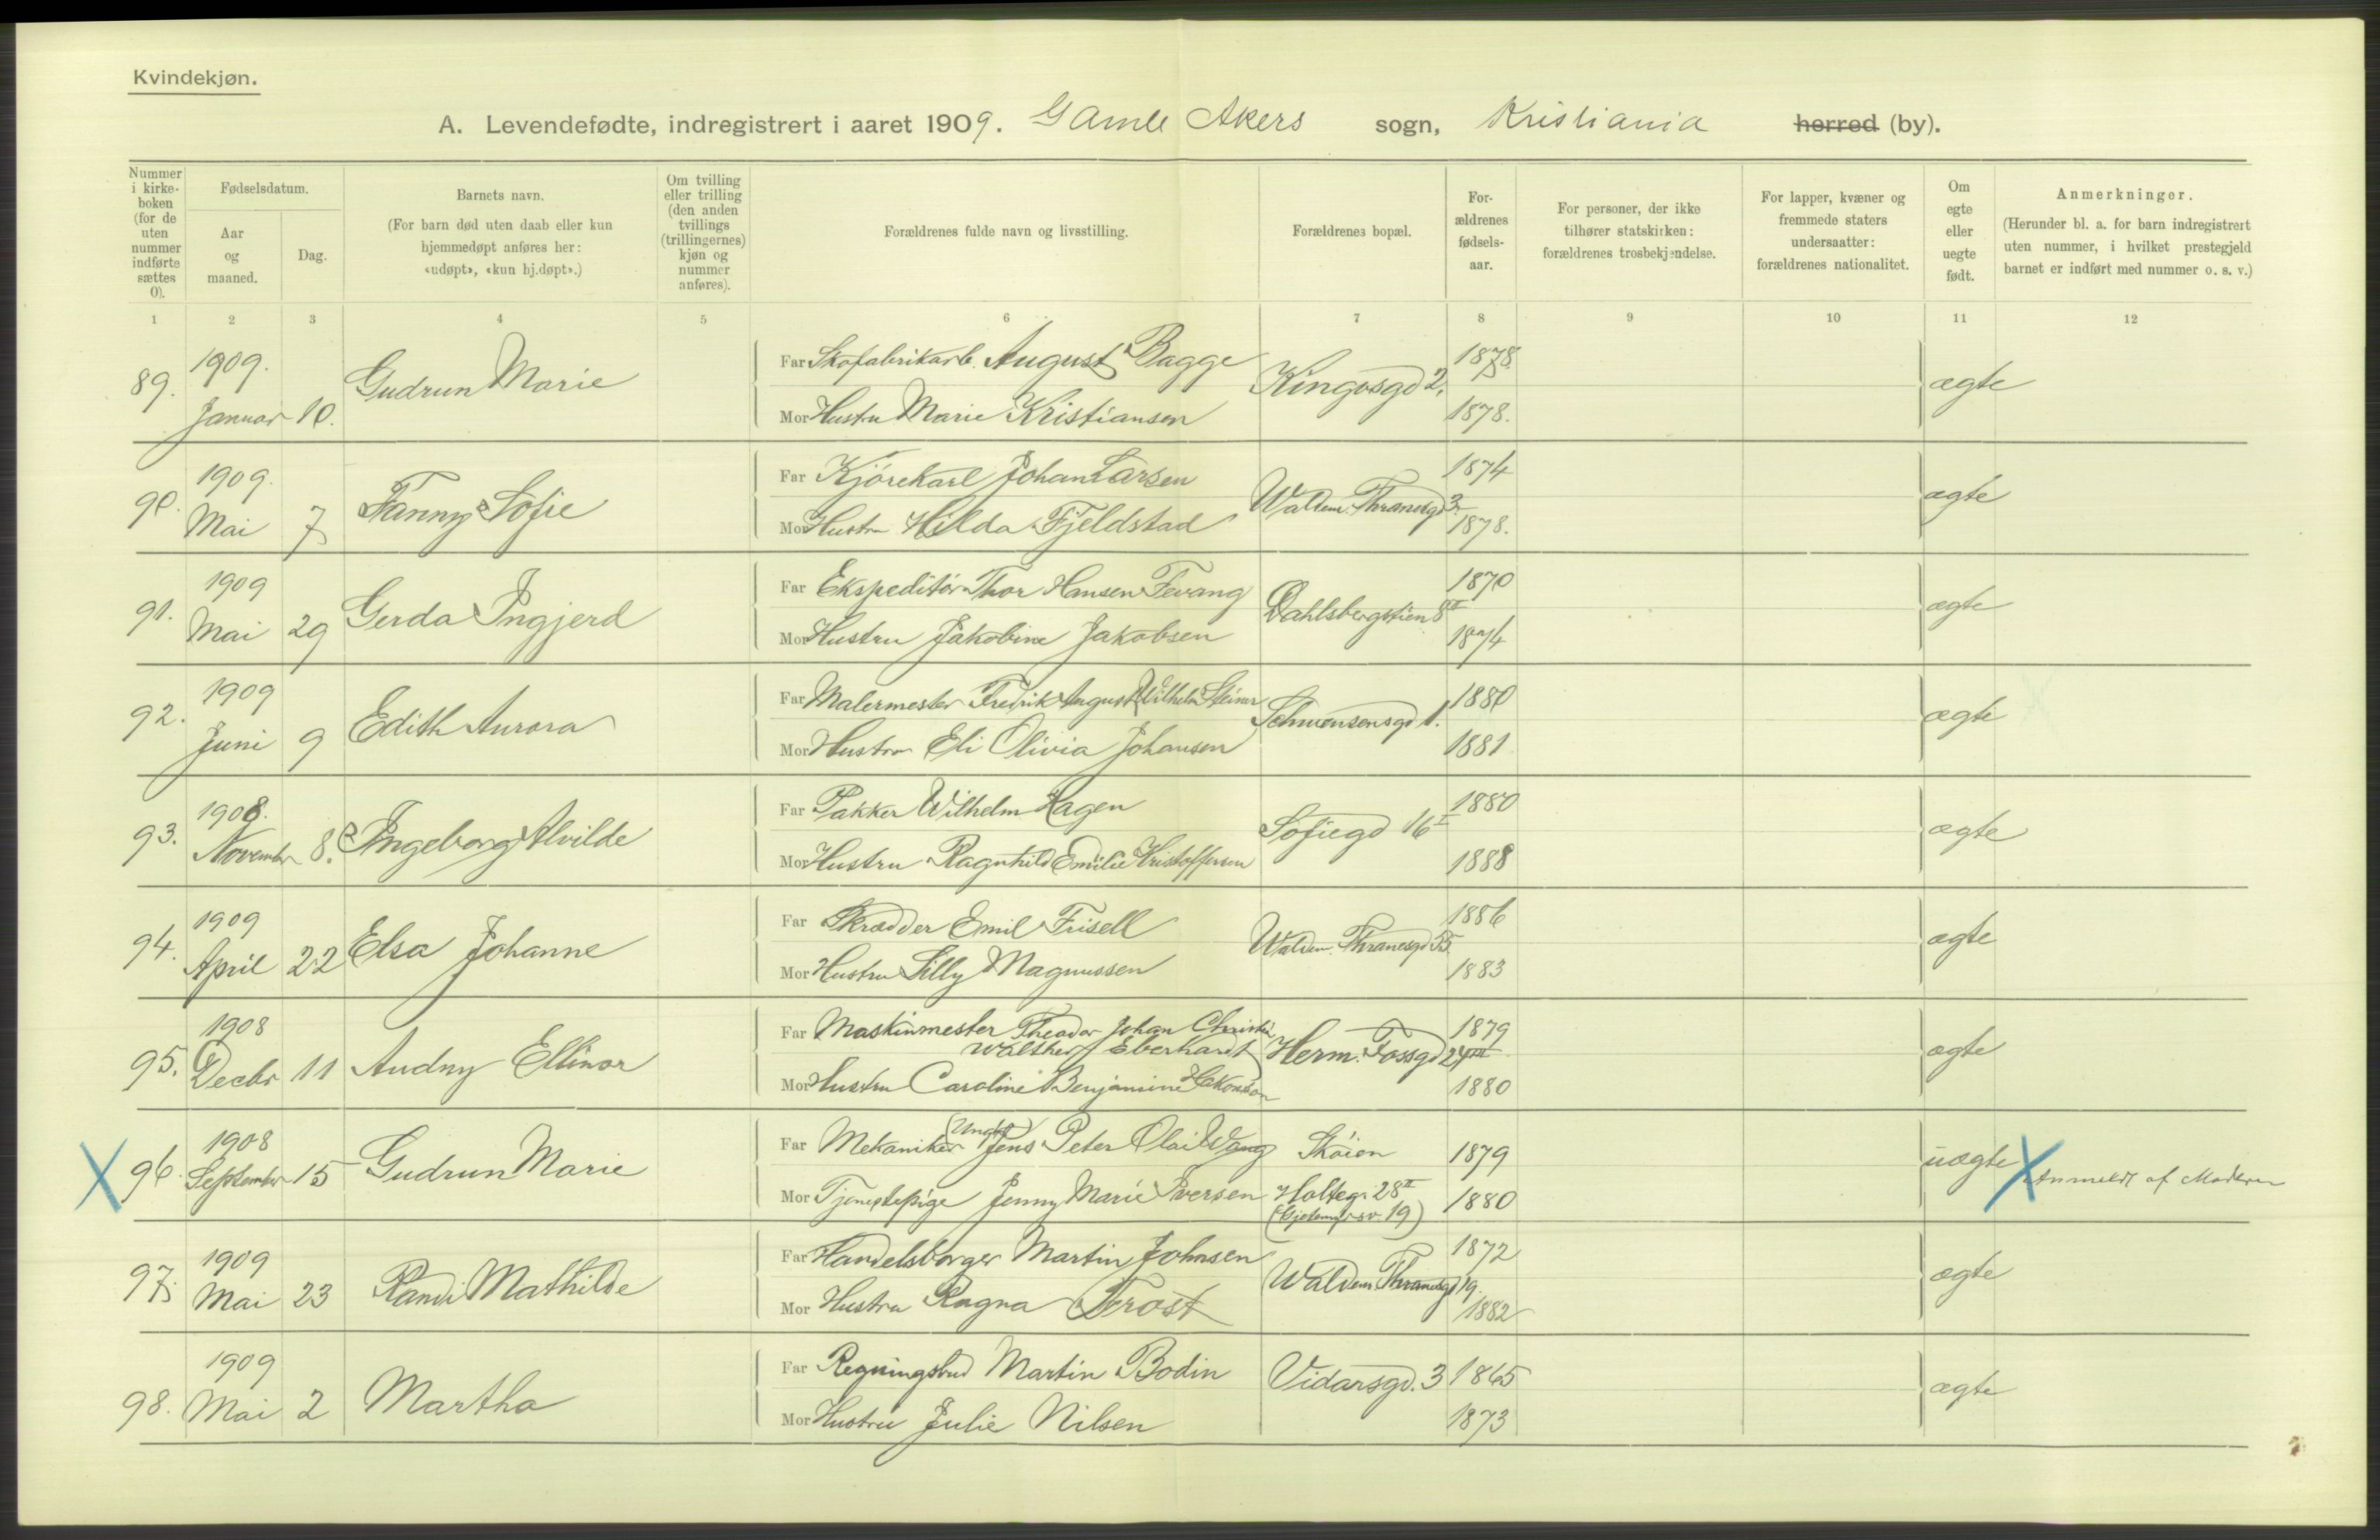 Kvindekjøn.
A. Levendefødte, indregistrert i aaret 1909. Gamle Akers sogn, Kristiania herred (by).
Nummer i kirke-boken (for de uten nummer indførte sættes 0).
Fødselsdatum.
Aar og maaned.
Dag.
Barnets navn.
(For barn død uten daab eller kun hjemmedøpt anføres her: «udøpt», «kun hj.døpt».)
Om tvilling eller trilling (den anden tvillings (trillingernes) kjøn og nummer anføres).
Forældrenes fulde navn og livsstilling.
Forældrenes bopæl.
For-ældrenes fødsels-aar.
For personer, der ikke tilhører statskirken: forældrenes trosbekjendelse.
For lapper, kvæner og fremmede staters undersaatter: forældrenes nationalitet.
Om egte eller uegte født.
Anmerkninger.
(Herunder bl. a. for barn indregistrert uten nummer, i hvilket prestegjeld barnet er indført med nummer o. s. v.)
1 2 3 4 5 6 7 8 9 10 11 12
89. 1909. Januar 10. Gudrun Marie
Far Skofabrikarb. August Bagge Kingosgd 2. 1878.
Mor Hustru Marie Kristiansen 1878. ægte
90. 1909. Mai 7 Fanny Sofie
Far Kjörekarl Johan Larsen Waldem. Thranesgd 3. 1874
Mor Hustru Hilda Fjeldstad 1878. ægte
91. 1909 Mai 29 Gerda Ingjerd
Far Ekspeditör Thor Hansen Fevang Dahlsbergstien 8 II 1870
Mor Hustru Jakobine Jakobsen 1874 ægte
92. 1909 Juni 9 Edith Aurora
Far Malermester Fredrik August Wilhelm Steiner Schwensensgd 1. 1880
Mor Hustru Eli Olivia Johansen 1881 ægte
93. 1908. November 8. Ingeborg Alvilde
Far Pakker Wilhelm Hagen Sofiegd 16 I 1880
Mor Hustru Ragnhild Emilie Kristoffersen 1888 ægte
94. 1909 April 22 Elsa Johanne
Far Skrædder Emil Frisell Waldem. Thranesgd 55. 1886
Mor Hustru Lilly Magnussen 1883 ægte
95. 1908 Decbr 11 Audny Ellinor
Far Maskinmester Theodor Johan Christian
Walther Eberhardt Herm. Fossgd 24 III 1879
Mor Hustru Caroline Benjamine Hakonson 1880 ægte
X 96. 1908 September 15 Gudrun Marie
Far Mekaniker (Ungk) Jens Peter Olai Wang Skøien 1879
Mor Tjenestepige Jenny Marie Iversen Holtegr. 28 II 1880 uægte X Anmeldt af Moderen
97. 1909 Mai 23 Randi Mathilde
Far Handelsborger Martin Johnsen Waldem. Thranesgd 19. 1872
Mor Hustru Ragna Frost 1882 ægte
98. 1909 Mai 2 Martha
Far Regningsbud Martin Bodin Vidarsgd. 3 1865
Mor Hustru Julie Nilsen 1873 ægte